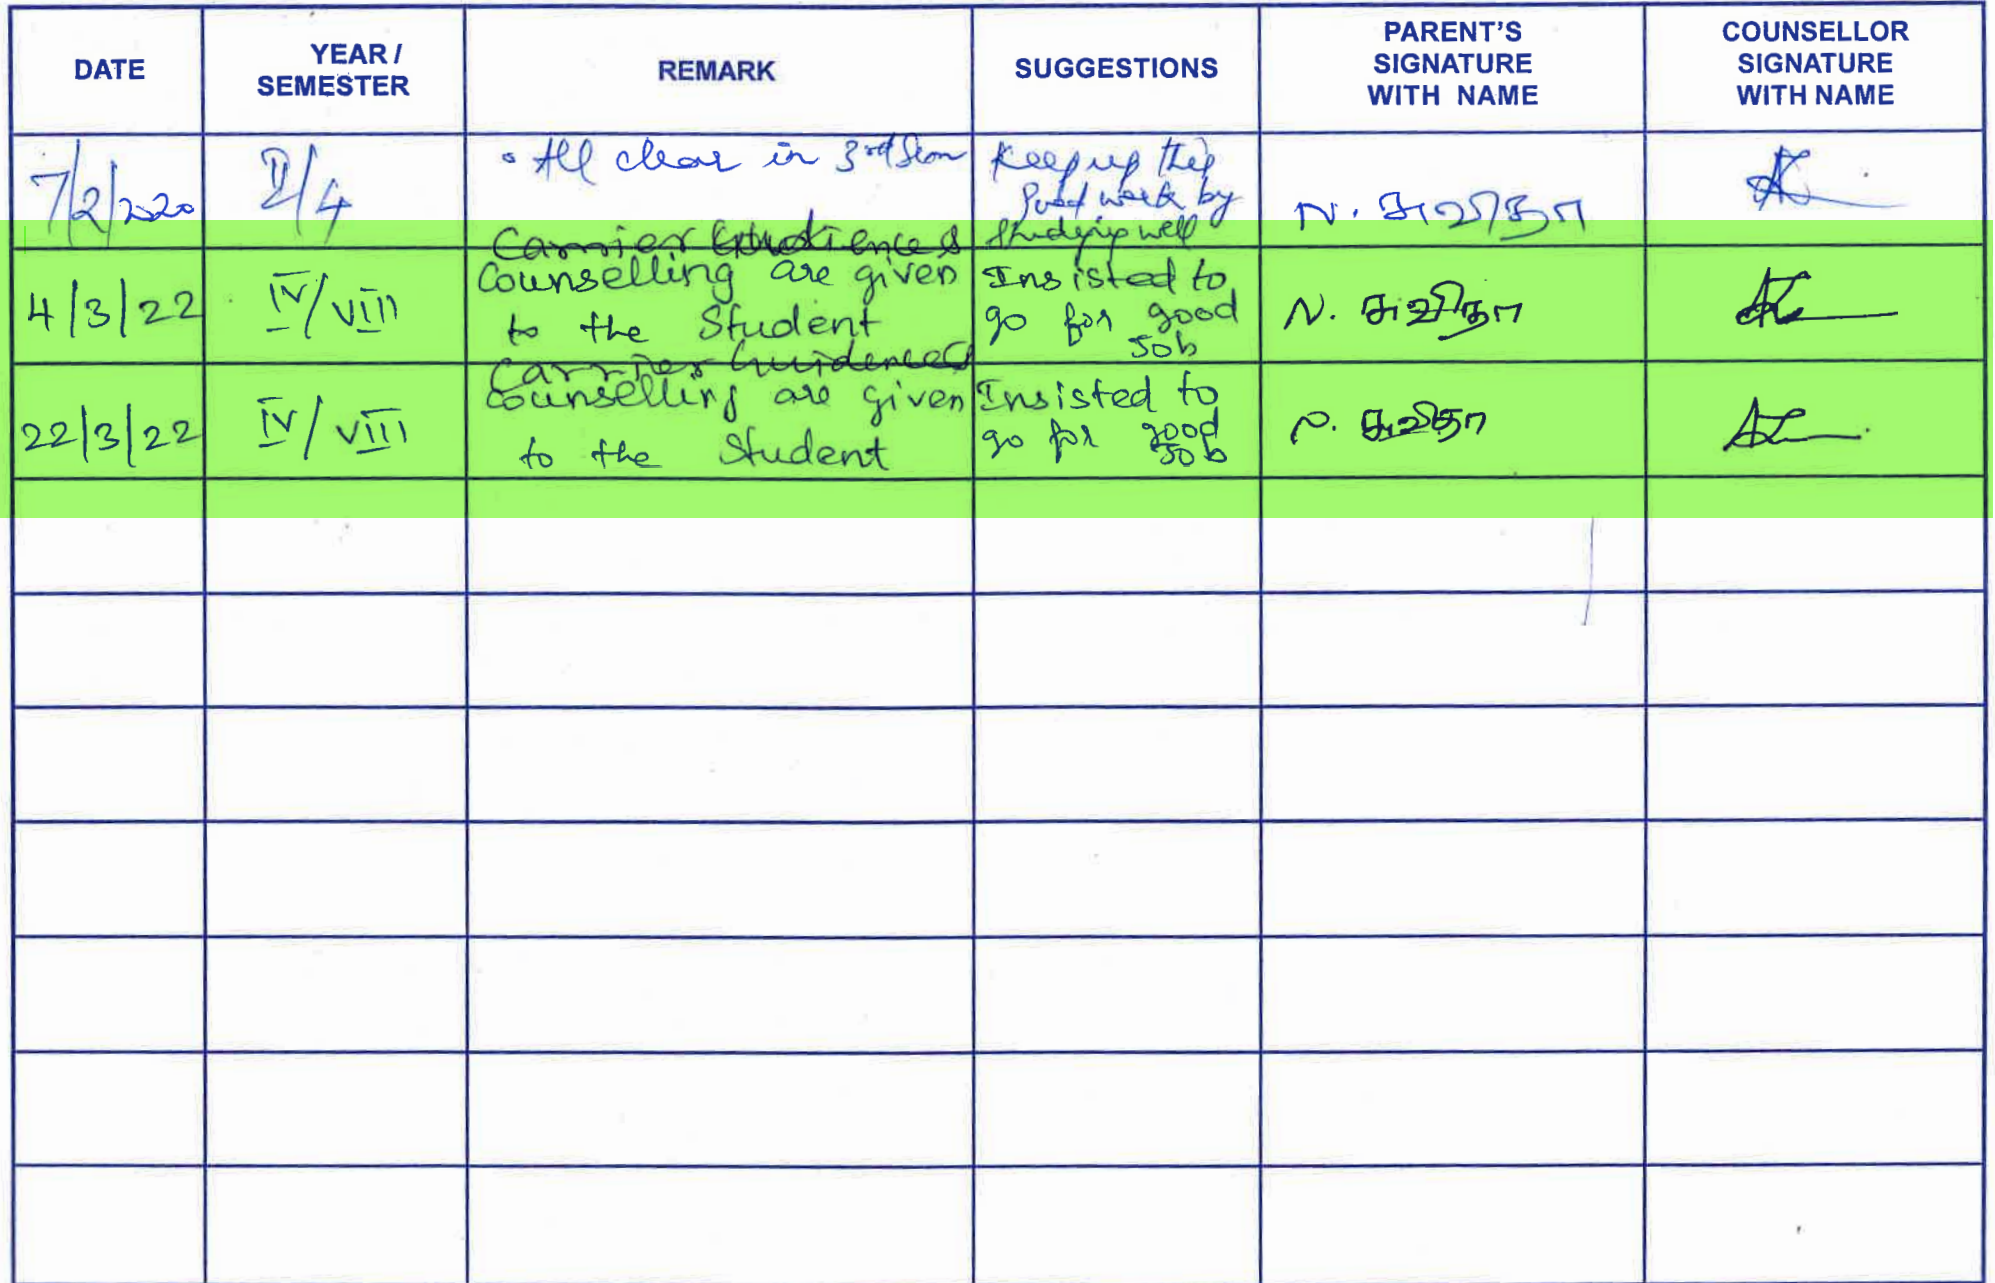 DATE
YEAR /
SEMESTER
REMARK
SUGGESTIONS
PARENT'S
SIGNATURE
WITH NAME
COUNSELLOR
SIGNATURE
WITH NAME
7/2/2020
II/4
All clear in 3rd Sem
Keep up this
work by
Studying well
N. சுவிதா
4/3/22
IV/VIII
Carrier
Counselling are given
to the Student
Insisted to
go for good
Job
N. சுவிதா
22/3/22
IV/VIII
Carrier Guidence &
Counselling are given
to the Student
Insisted to
go for good
Job
N. சுவிதா